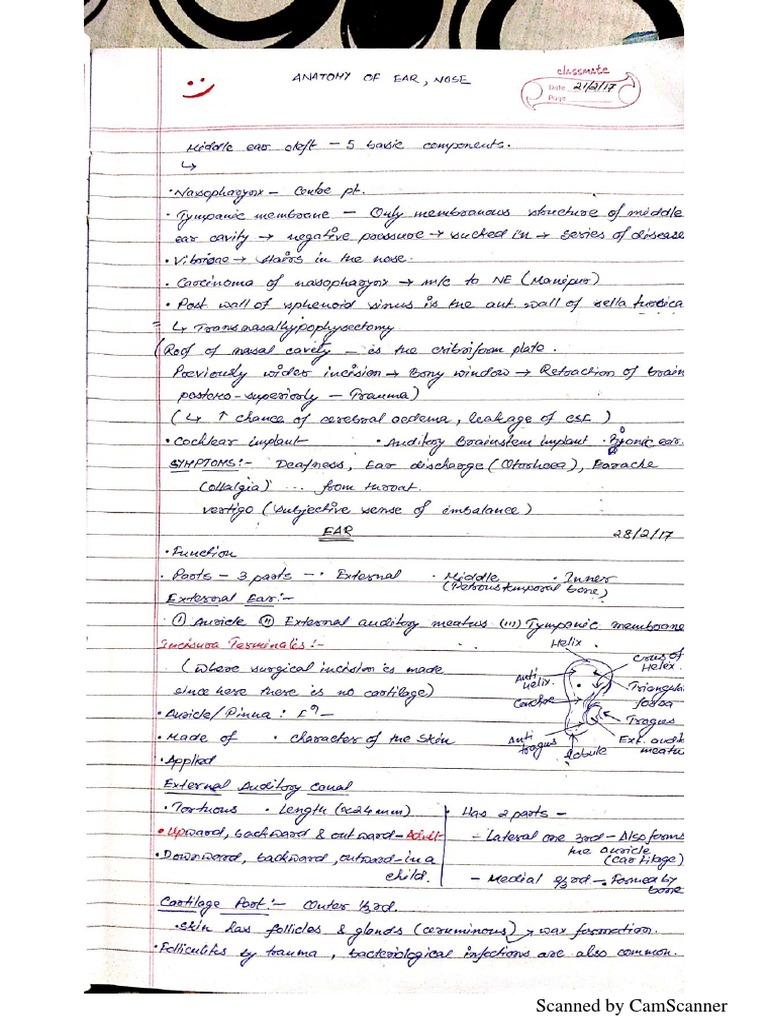 ANATOMY OF EAR, NOSE
classmate
Date 21/2/17
Page
Middle ear cleft - 5 basic components.
↳
• Nasopharynx - Centre pt.
• Tympanic membrane - Only membranous structure of middle
ear cavity → negative pressure → sucked in → series of disease
• Vibrisae → Hairs in the nose.
• Carcinoma of nasopharynx → m/c to NE (Manipur)
• Post wall of sphenoid sinus is the ant wall of sella turcica
= ↳ Transnasalhypophysectomy
(Roof of nasal cavity - is the cribriform plate.
Previously wider incision → Bony window → Retraction of brain
postero-superiorly - Trauma)
(↳ ↑ chance of cerebral oedema, leakage of CSF)
• Cochlear implant • Auditory Brainstem implant • Bionic ear.
SYMPTOMS:- Deafness, Ear discharge (Otorhoea), Earache
(otalgia) ... from throat.
vertigo (subjective sense of imbalance)
EAR 28/2/17
• Function
• Parts - 3 parts - • External • Middle • Inner
(Petrous temporal bone)
External Ear:-
(i) Auricle (ii) External auditory meatus (iii) Tympanic membrane
Incisura Terminales:-
(where surgical incision is made
since here there is no cartilage)
• Auricle/Pinna: F? -
• Made of • character of the skin
• Applied
Helix
Crus of
Helix.
Anti
helix.
Triangular
fossa
Conchae
Tragus
Anti
tragus
Ext. audit
meatu
Lobule
External Auditory Canal
• Tortuous • Length (≈24mm)
• Upward, backward & outward - Adult
• Downward, backward, outward - in a
child.
• Has 2 parts -
- Lateral one 3rd - Also forms
the auricle
(cartilage)
- Medial 2/3rd - Formed by
bone
Cartilage Part:- Outer 1/3rd.
• Skin has follicles & glands (ceruminous) → wax formation.
• Folliculites by trauma, bacteriological infections are also common.
Scanned by CamScanner